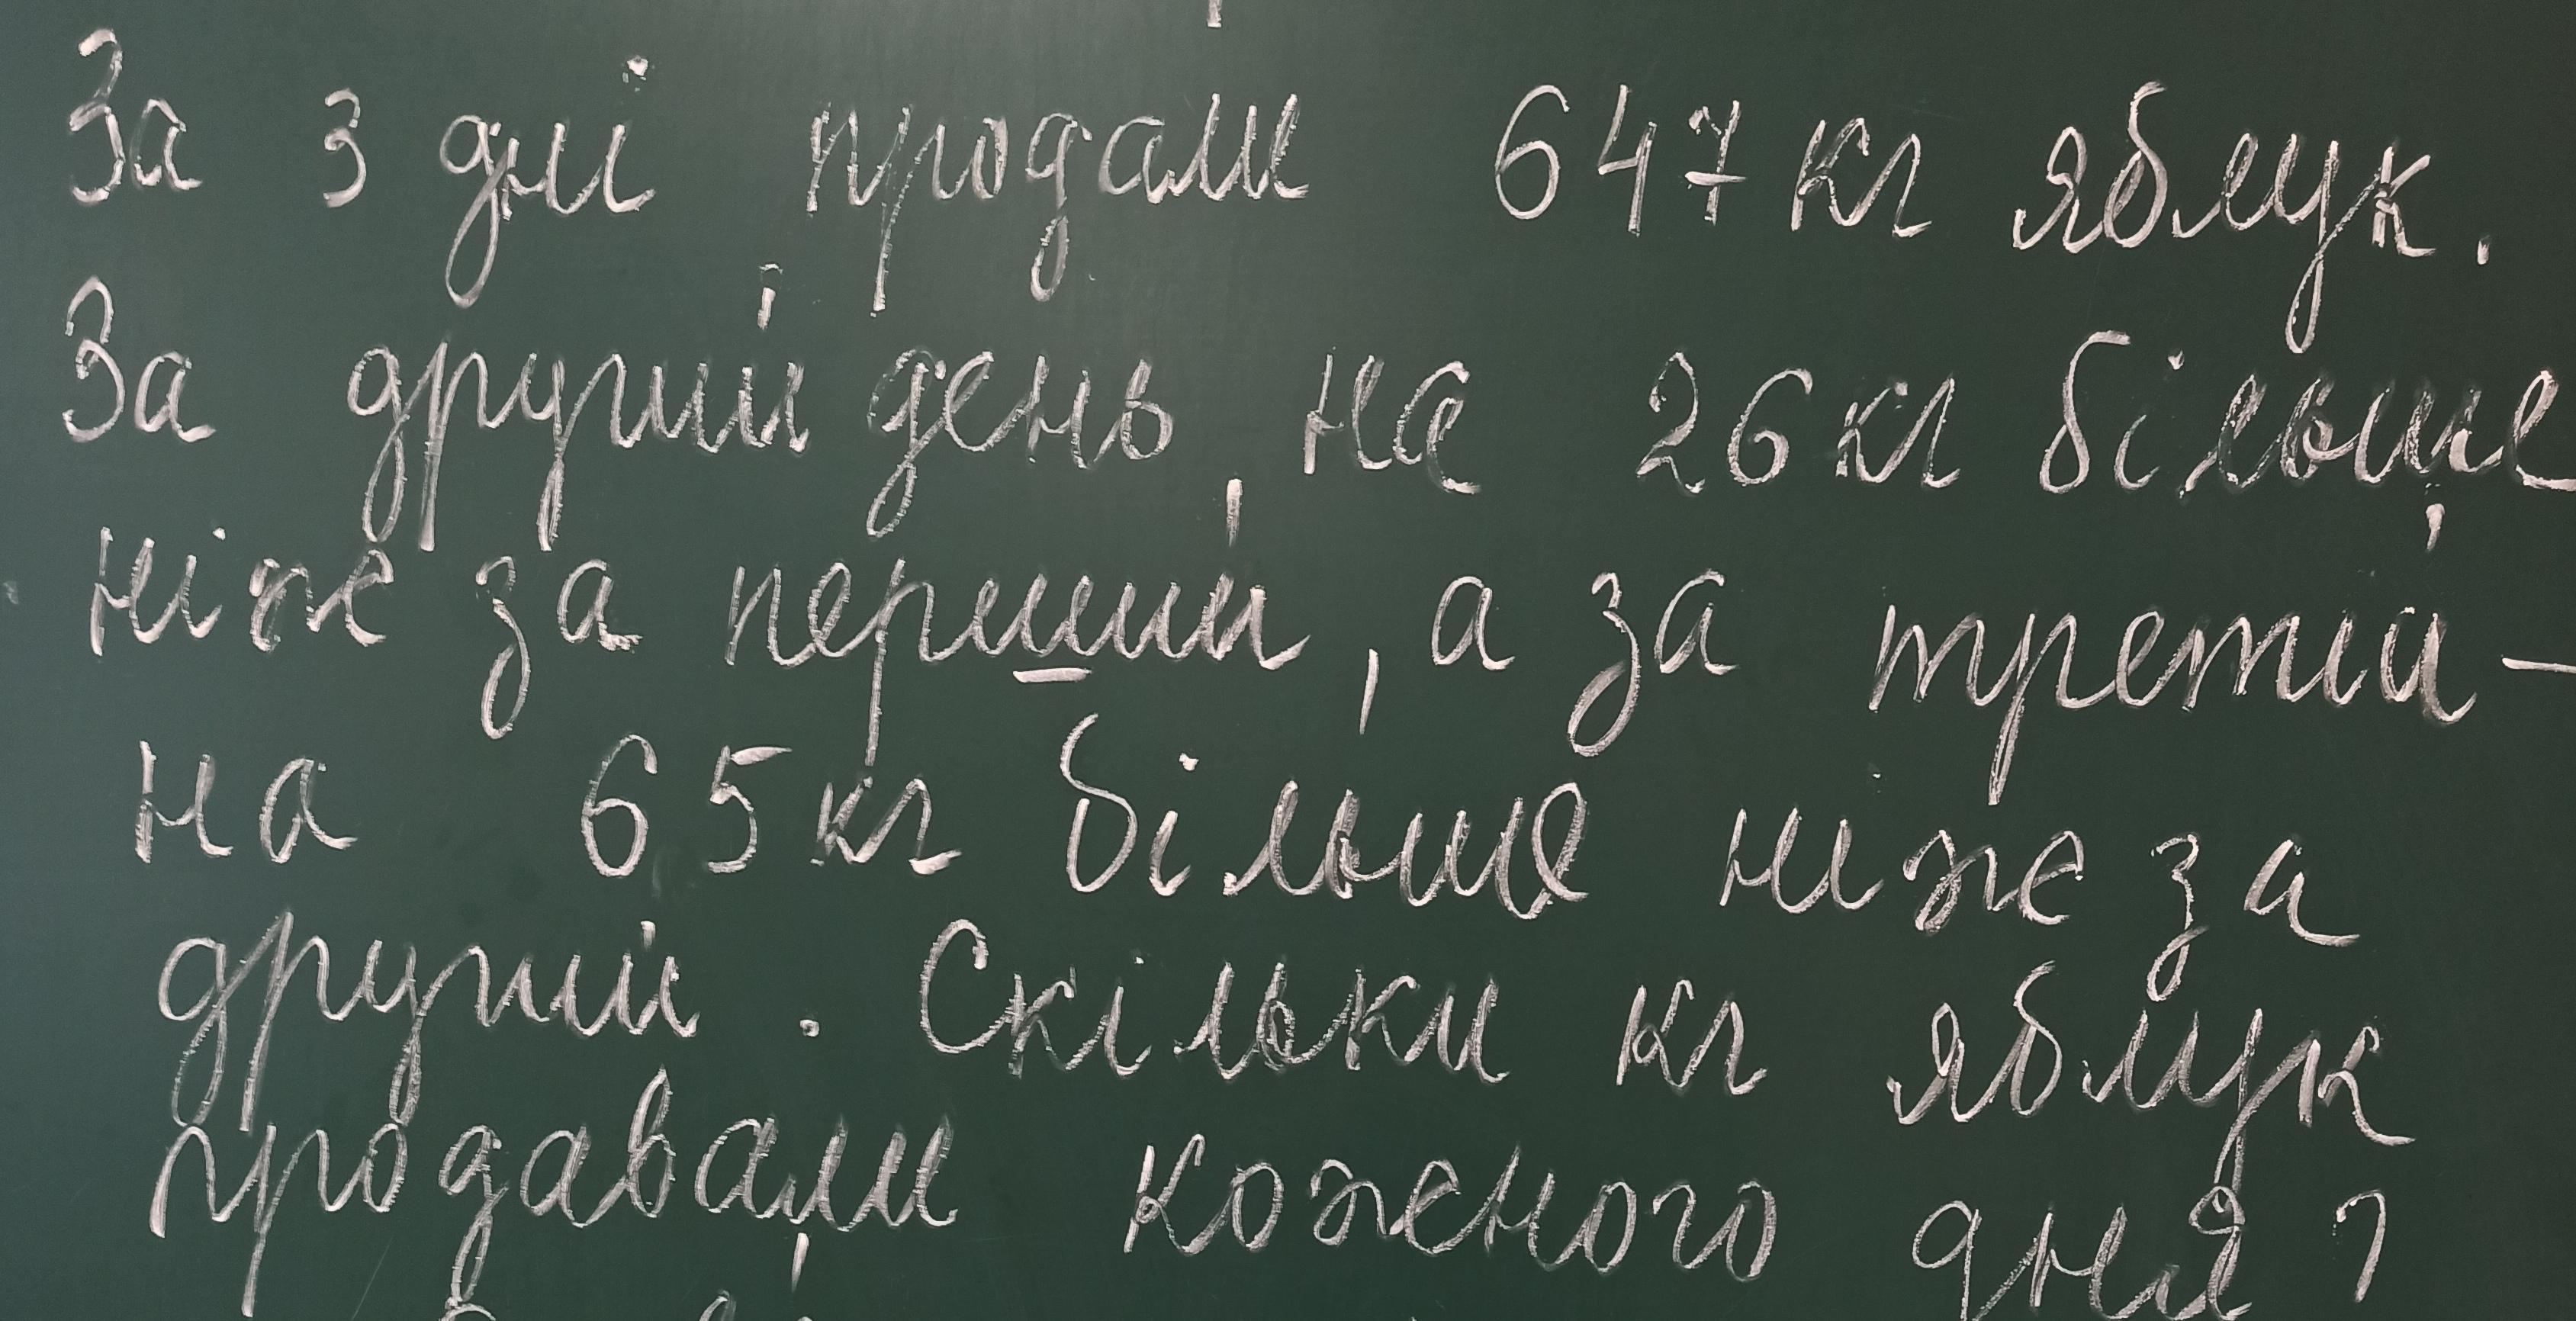 За 3 дні продали 647 кг яблук.
За другий день, на 26 кг більше
ніж за перший, а за третій -
на 65 кг більше ніж за
другий. Скільки кг яблук
продавали кожного дня?